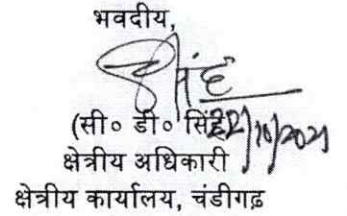 भवदीय,
(सी० डी० सिंह)
22/10/2021
क्षेत्रीय अधिकारी
क्षेत्रीय कार्यालय, चंडीगढ़